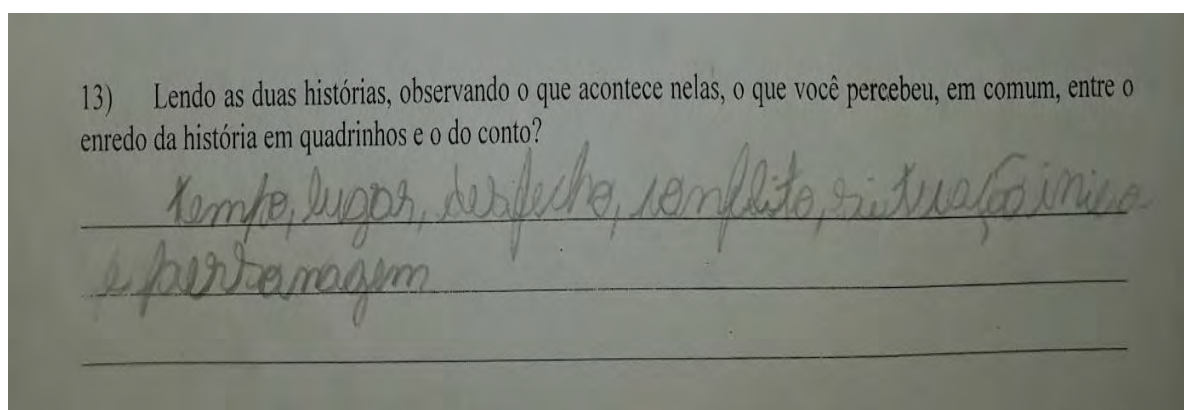 13) Lendo as duas histórias, observando o que acontece nelas, o que você percebeu, em comum, entre o
enredo da história em quadrinhos e o do conto?
tempo, lugar, desfecho, comflito, situação
e personagem